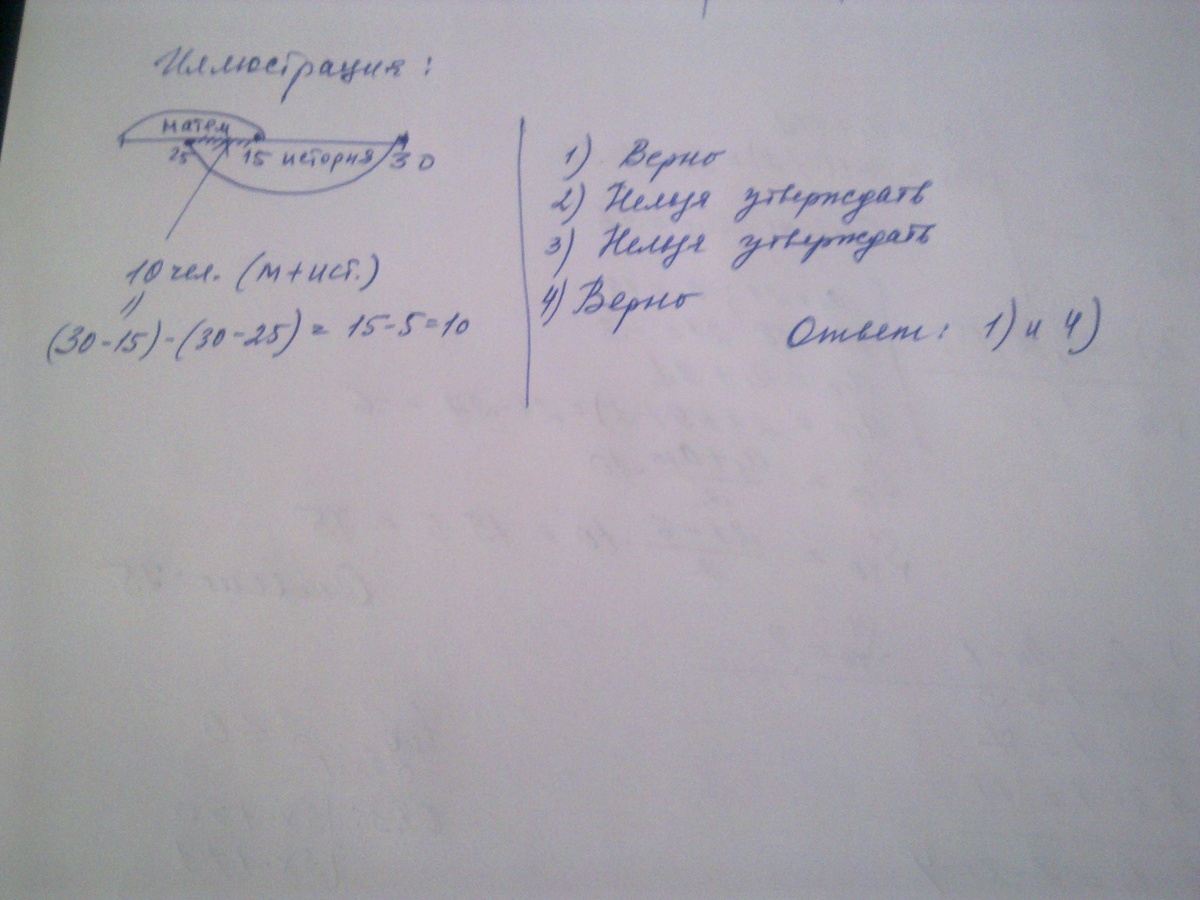 Иллюстрация:
матем
25 15 история 30
10 чел. (м+ист.)
(30-15)-(30-25) = 15-5=10
1) Верно
2) Нельзя утверждать
3) Нельзя утверждать
4) Верно
Ответ: 1) и 4)